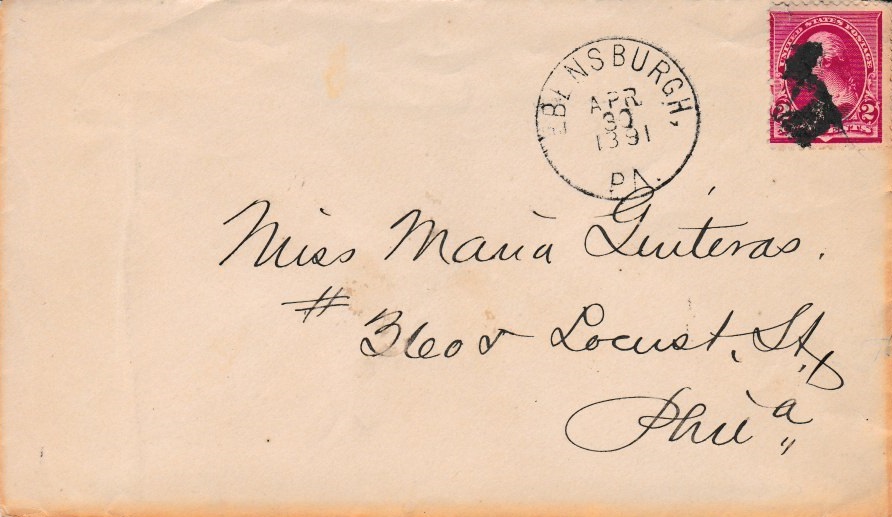 UNITED STATES POSTAGE
2 2
EBENSBURGH,
APR
30
1891
PA.
Miss Maria Guiteras.
# 3608 Locust, St,
Phil a